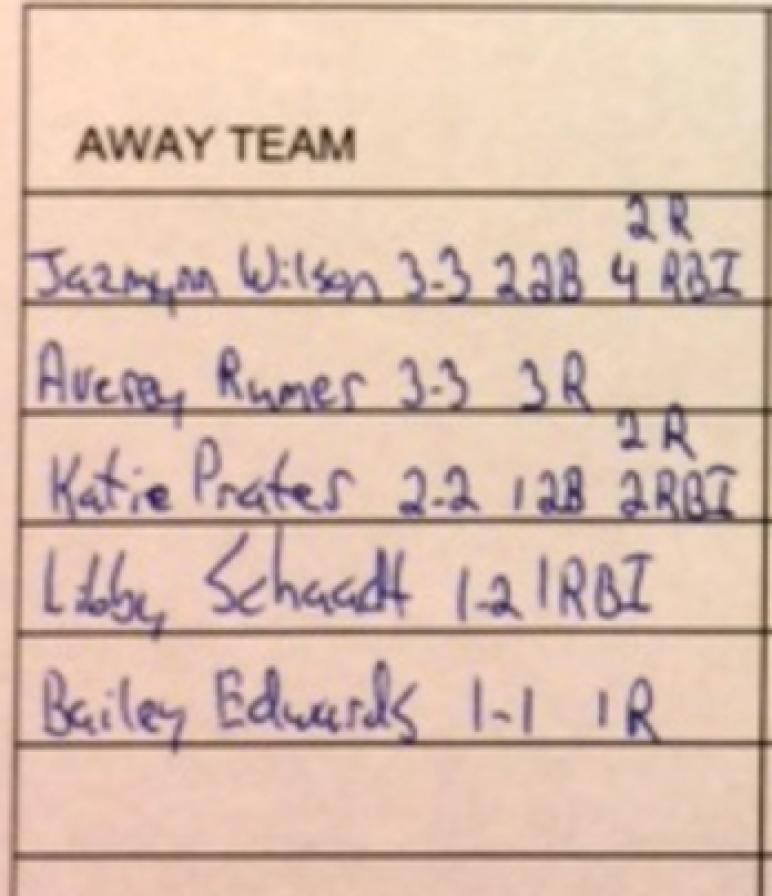 AWAY TEAM
2 R
Jazmynn Wilson 3-3 2 2B 4 RBI
Avery Rumer 3-3 3 R
2 R
Katie Prater 2-2 1 2B 2 RBI
Libby Schaadt 1-2 1 RBI
Bailey Edwards 1-1 1 R